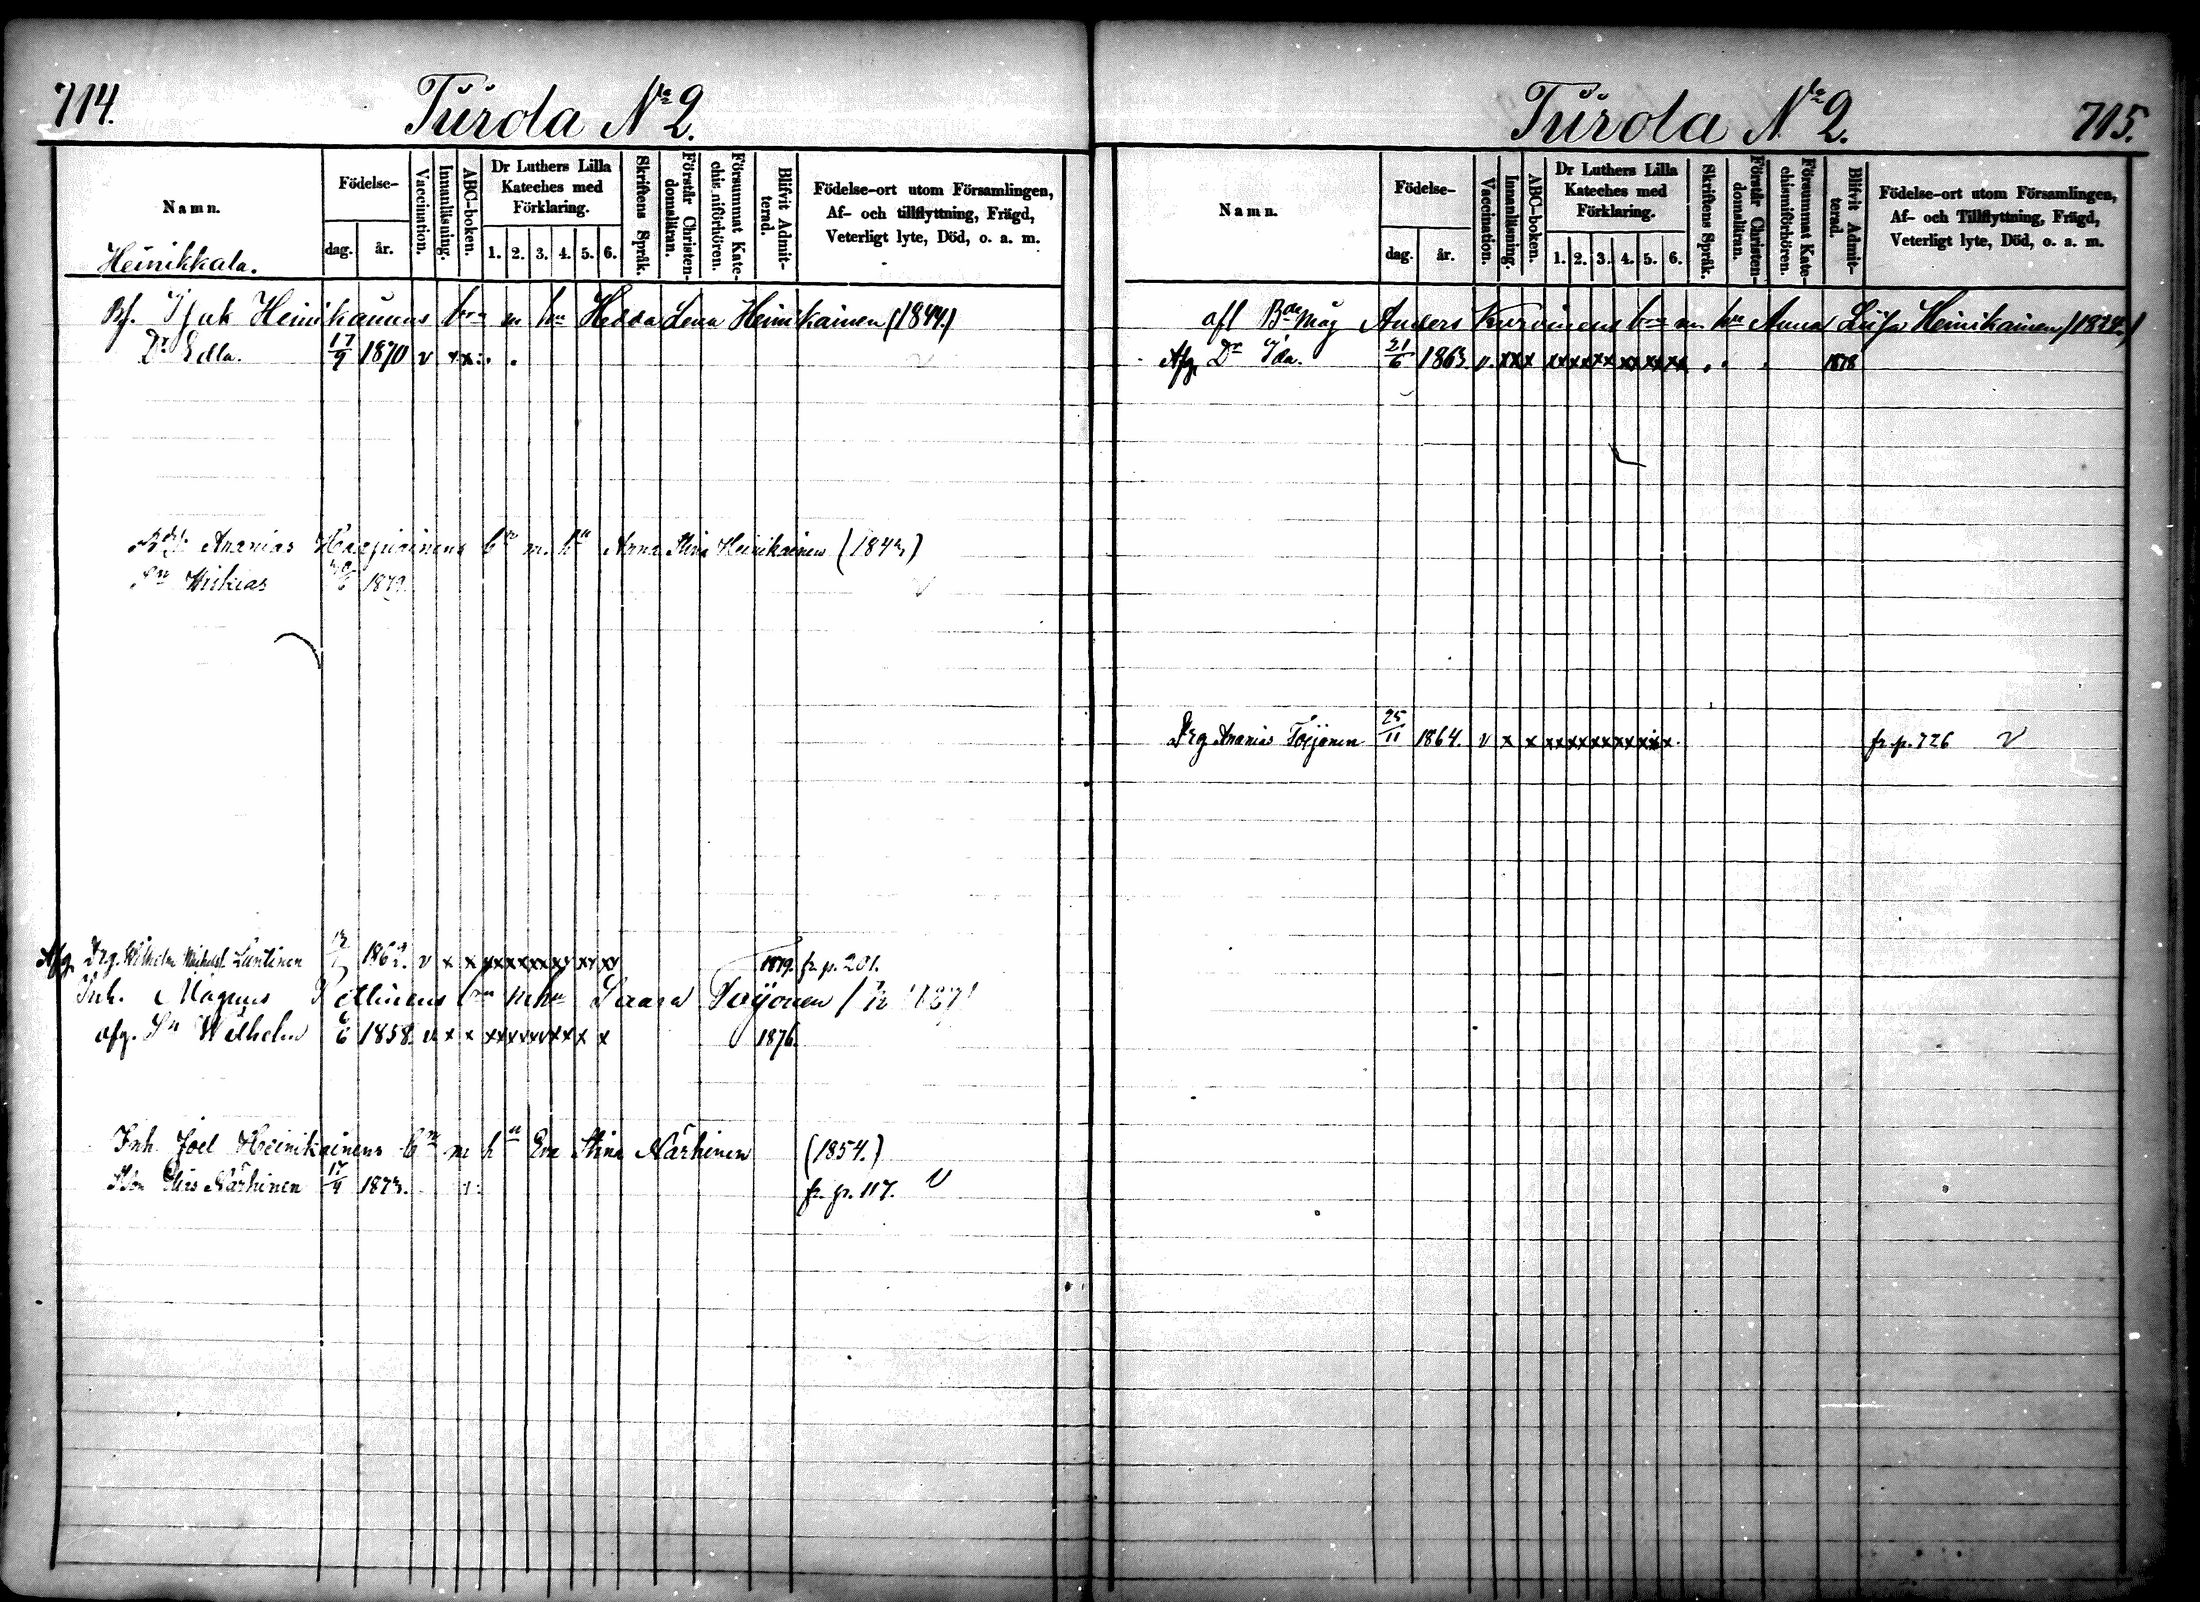 714.
Türola No 2.
Namn.
Födelse-
dag.
år.
Vaccination.
Innanläsning.
ABC-boken.
Dr Luthers Lilla
Kateches med
Förklaring.
1. 2. 3. 4. 5. 6.
Skriftens Språk.
Förstår Christen-
domsläran.
Försummat Kate-
chismiförhören.
Blifvit Admit-
terad.
Födelse-ort utom Församlingen,
Af- och tillflyttning, Frägd,
Veterligt lyte, Död, o. a. m.
Heinikkala.
Bf. Isak Heinikainens brn m hu Hedda Lena Heinikainen (1844.)
Dr Edla. 17/9 1870 v xx
Ananias m. hu Anna Stina Heinikainen (1843)
Sn 1879.
Afg. Drg. Wilhelm Luntinen 1862. v x x xxxxxxxx xx xx 1879. fr. p. 201.
Inh. Magnus brn m hu Saara Toijonen
afg. Sn Wilhelm 6/6 1858. v x x xxxxxxxx x 1876.
Inh. Joel Heinikainens bn m hu Eva Stina Närhinen (1854.)
Närhinen 17/9 1873. fr. p. 117. v
Türola No 2.
715.
Namn.
Födelse-
dag.
år.
Vaccination.
Innanläsning.
ABC-boken.
Dr Luthers Lilla
Kateches med
Förklaring.
1. 2. 3. 4. 5. 6.
Skriftens Språk.
Förstår Christen-
domsläran.
Försummat Kate-
chismiförhören.
Blifvit Admit-
terad.
Födelse-ort utom Församlingen,
Af- och Tillflyttning, Frägd,
Veterligt lyte, Död, o. a. m.
afl Bde Måg Anders Kurvinens brn m. hu Anna Lisa Heinikainen (1824.)
Afg. Dr Ida. 21/6 1863. v. xx x xxxxxxxxxxxx 1878
Drg Ananias Toijonen 25/11 1864. v x x xxxxxxxxxxx. fr. p. 726 v